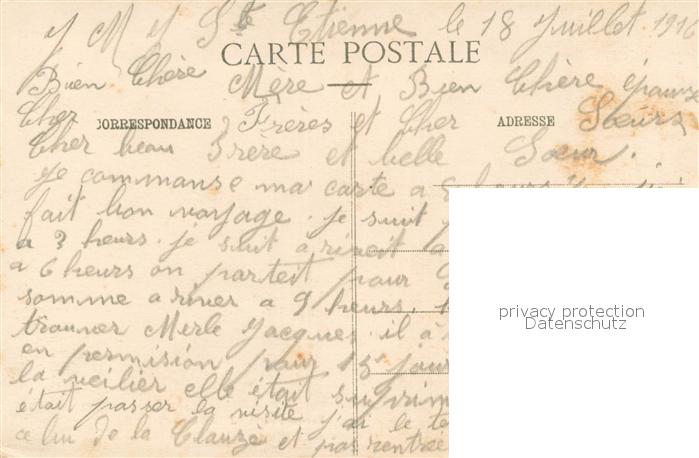 J M J St Etienne le 18 Juillet 1916
CARTE POSTALE
Bien Chère Mère et Bien Chère épouse
Cher Frères et Cher Sœurs
CORRESPONDANCE
ADRESSE
Cher beau Frere et belle Sœur.
Je commanse ma carte a
fait bon voyage. je suit
a 3 heurs. je suit a
a 6 heurs on parteit pour
somme a river a 9 heurs.
trouver Merle Jacques il à
en permision pour 15 jour
la veilier elle était suprim
était passer la visite j'ai le
ce lui de la Clauze et pas rentrée
privacy protection
Datenschutz